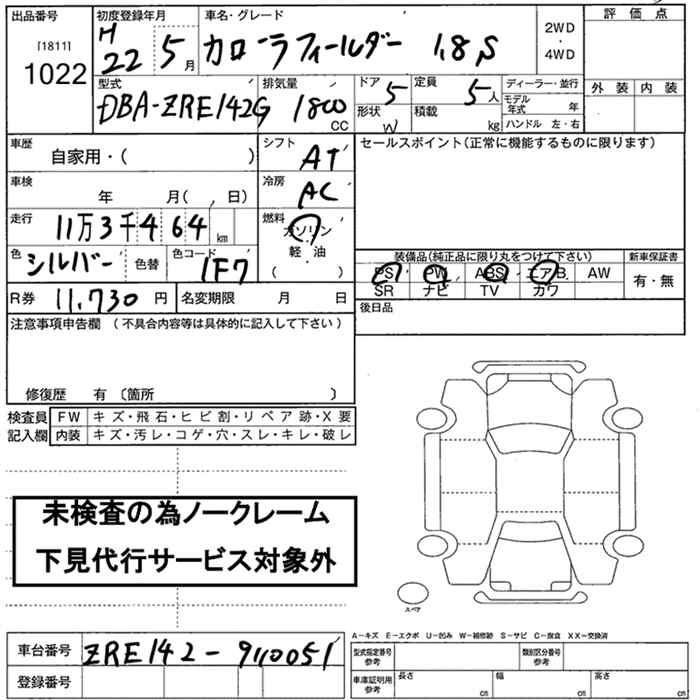 出品番号
[1811]
1022
初度登録年月
H
22 5月
車名・グレード
カローラフィールダー 1.8S
2WD
・
4WD
評価点
外装 内装
型式
DBA-ZRE142G
排気量
1800
CC
ドア
5
定員
5人
形状
W
積載
kg
ディーラー・並行
モデル年式 年
ハンドル 左・右
車歴
自家用・( )
シフト
AT
セールスポイント(正常に機能するものに限ります)
車検
年 月( , 日)
冷房
AC
走行
11万3千464 km
燃料
ガソリン
軽・油
( )
色
シルバー
色替
色コード
1F7
装備品(純正品に限り丸をつけて下さい)
PS PW ABS エアB. AW
SR ナビ TV カワ
新車保証書
有・無
R券 11,730 円
名変期限 月 日
後日品
注意事項申告欄 (不具合内容等は具体的に記入して下さい)
修復歴 有 〔箇所 〕
検査員 FW キズ・飛石・ヒビ割・リペア跡・X要
記入欄 内装 キズ・汚レ・コゲ・穴・スレ・キレ・破レ
未検査の為ノークレーム
下見代行サービス対象外
スペア
A-キズ E-エクボ U-凹み W-補修跡 S-サビ C-腐食 XX-交換済
車台番号 ZRE142-9110051
登録番号
型式指定番号
参考
類別区分番号
参考
車庫証明用
参考
長さ cm
幅 cm
高さ cm